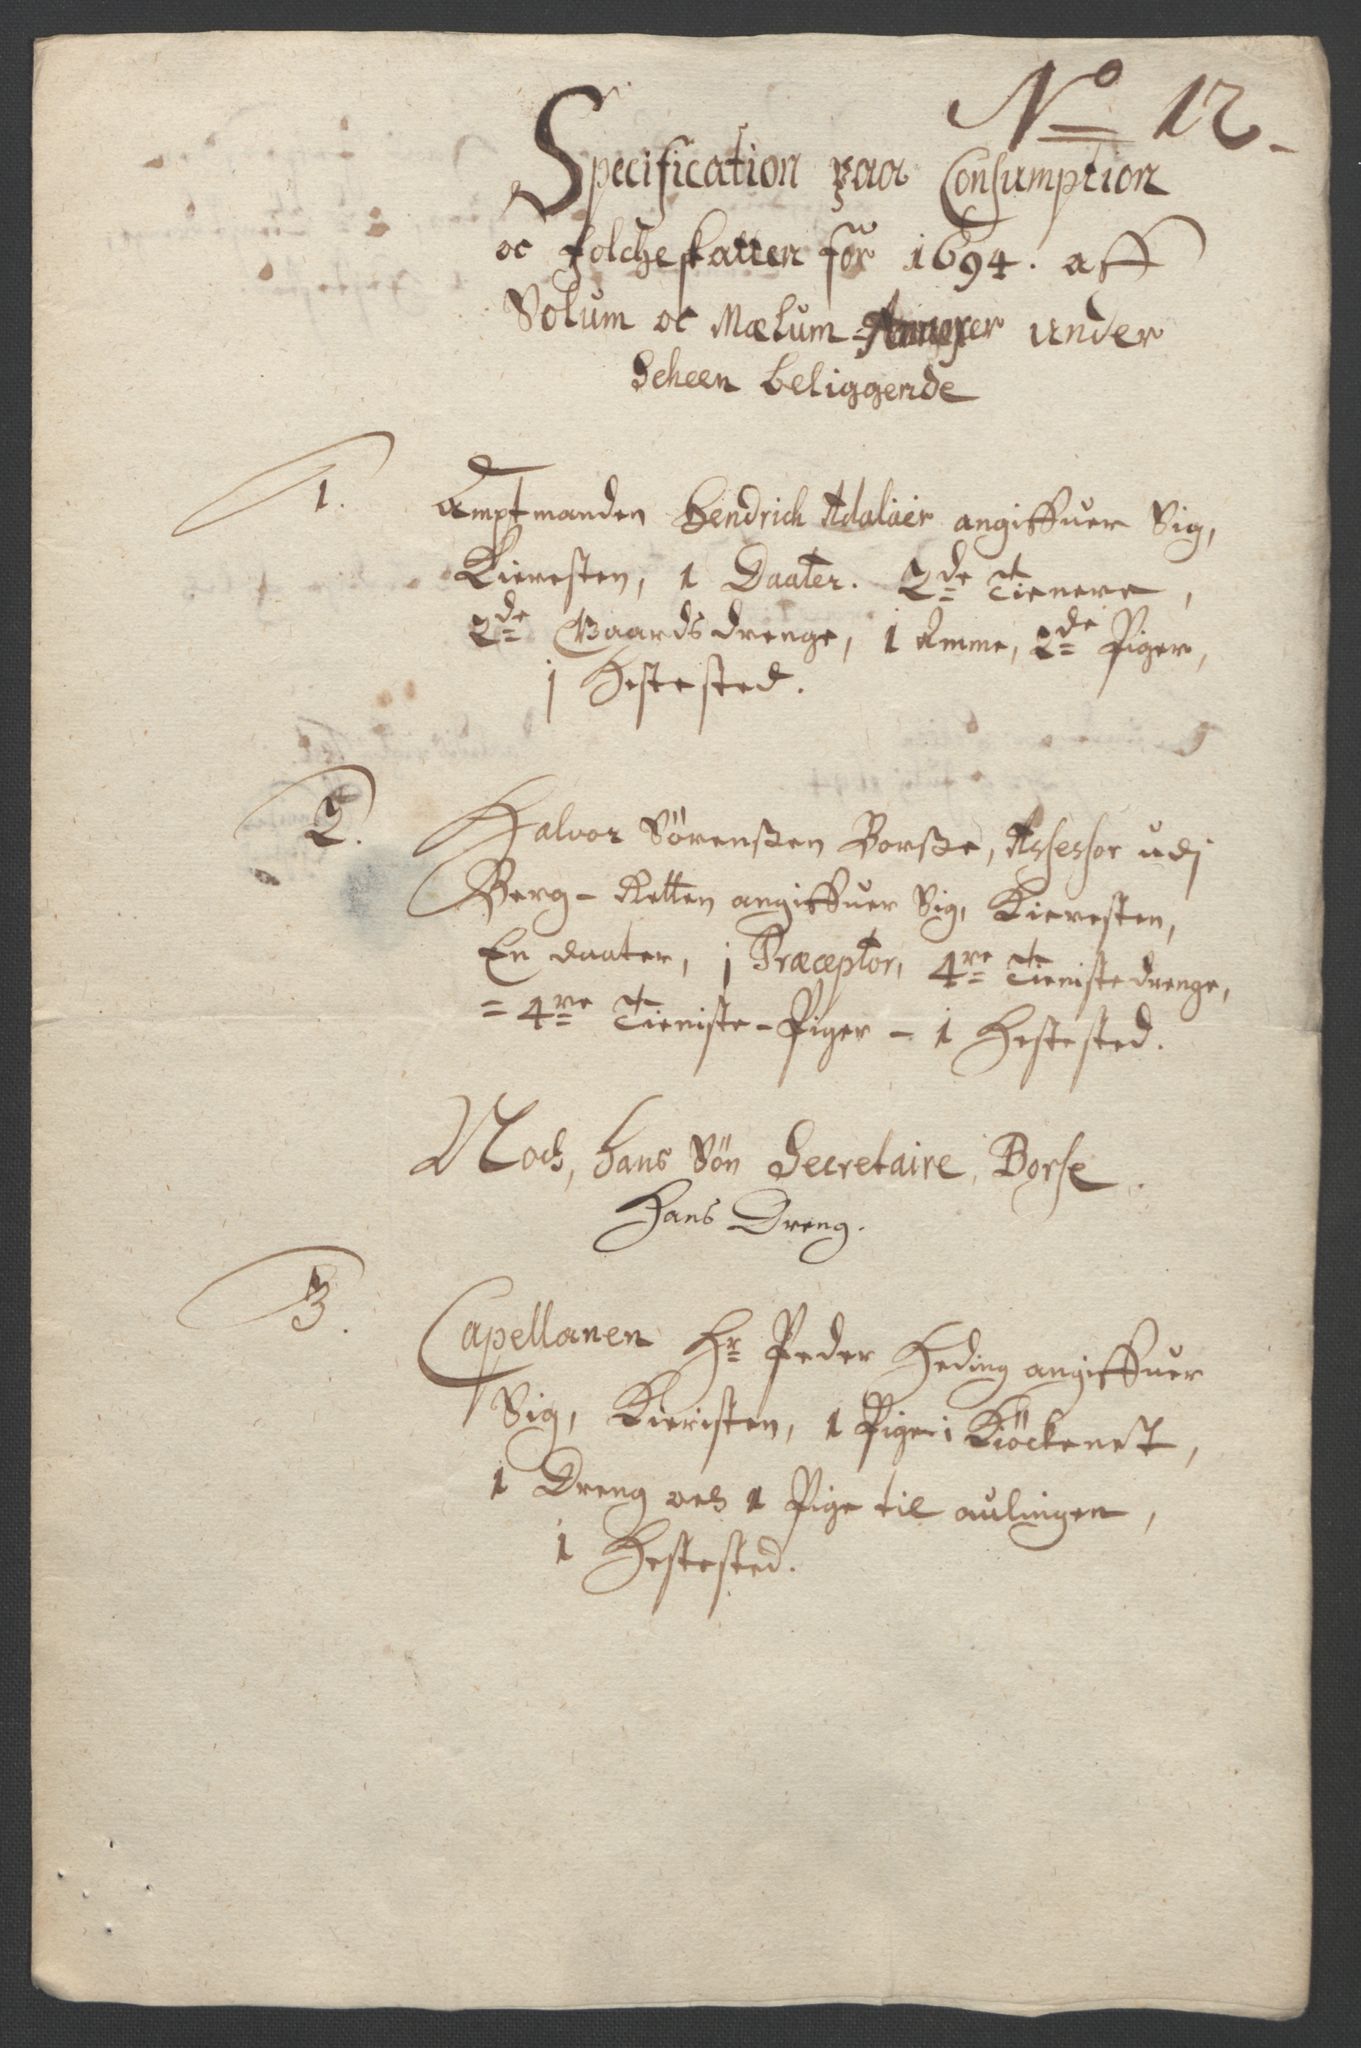 No 12.
Specification paa Consumption
oc folcheskatten for 1694. aff
Solum oc Mælum Annexer under
Scheen beliggende
1. Amptmanden Hendrich Adalaer angiffuer Sig,
Kieresten, 1 Daater. 2de Tienere,
2de Gaardsdrenge, 1 Amme, 2de Piger,
j Hestested.
2. Halvor Sørenßen Borße, Assessor udj
Berg-Retten angiffuer Sig, Kieresten,
En daater, j Præceptor, 4re Tienistedrenge,
= 4re Tieniste-Piger - 1 Hestested.
Noch, hans Søn Secretaire, Borse.
Hans Dreng.
3. Capellanen Hr Peder Heding angiffuer
Sig, Kieristen, 1 Pige i Kiöckenet,
1 Dreng och 1 Pige til aulingen,
1 Hestested.